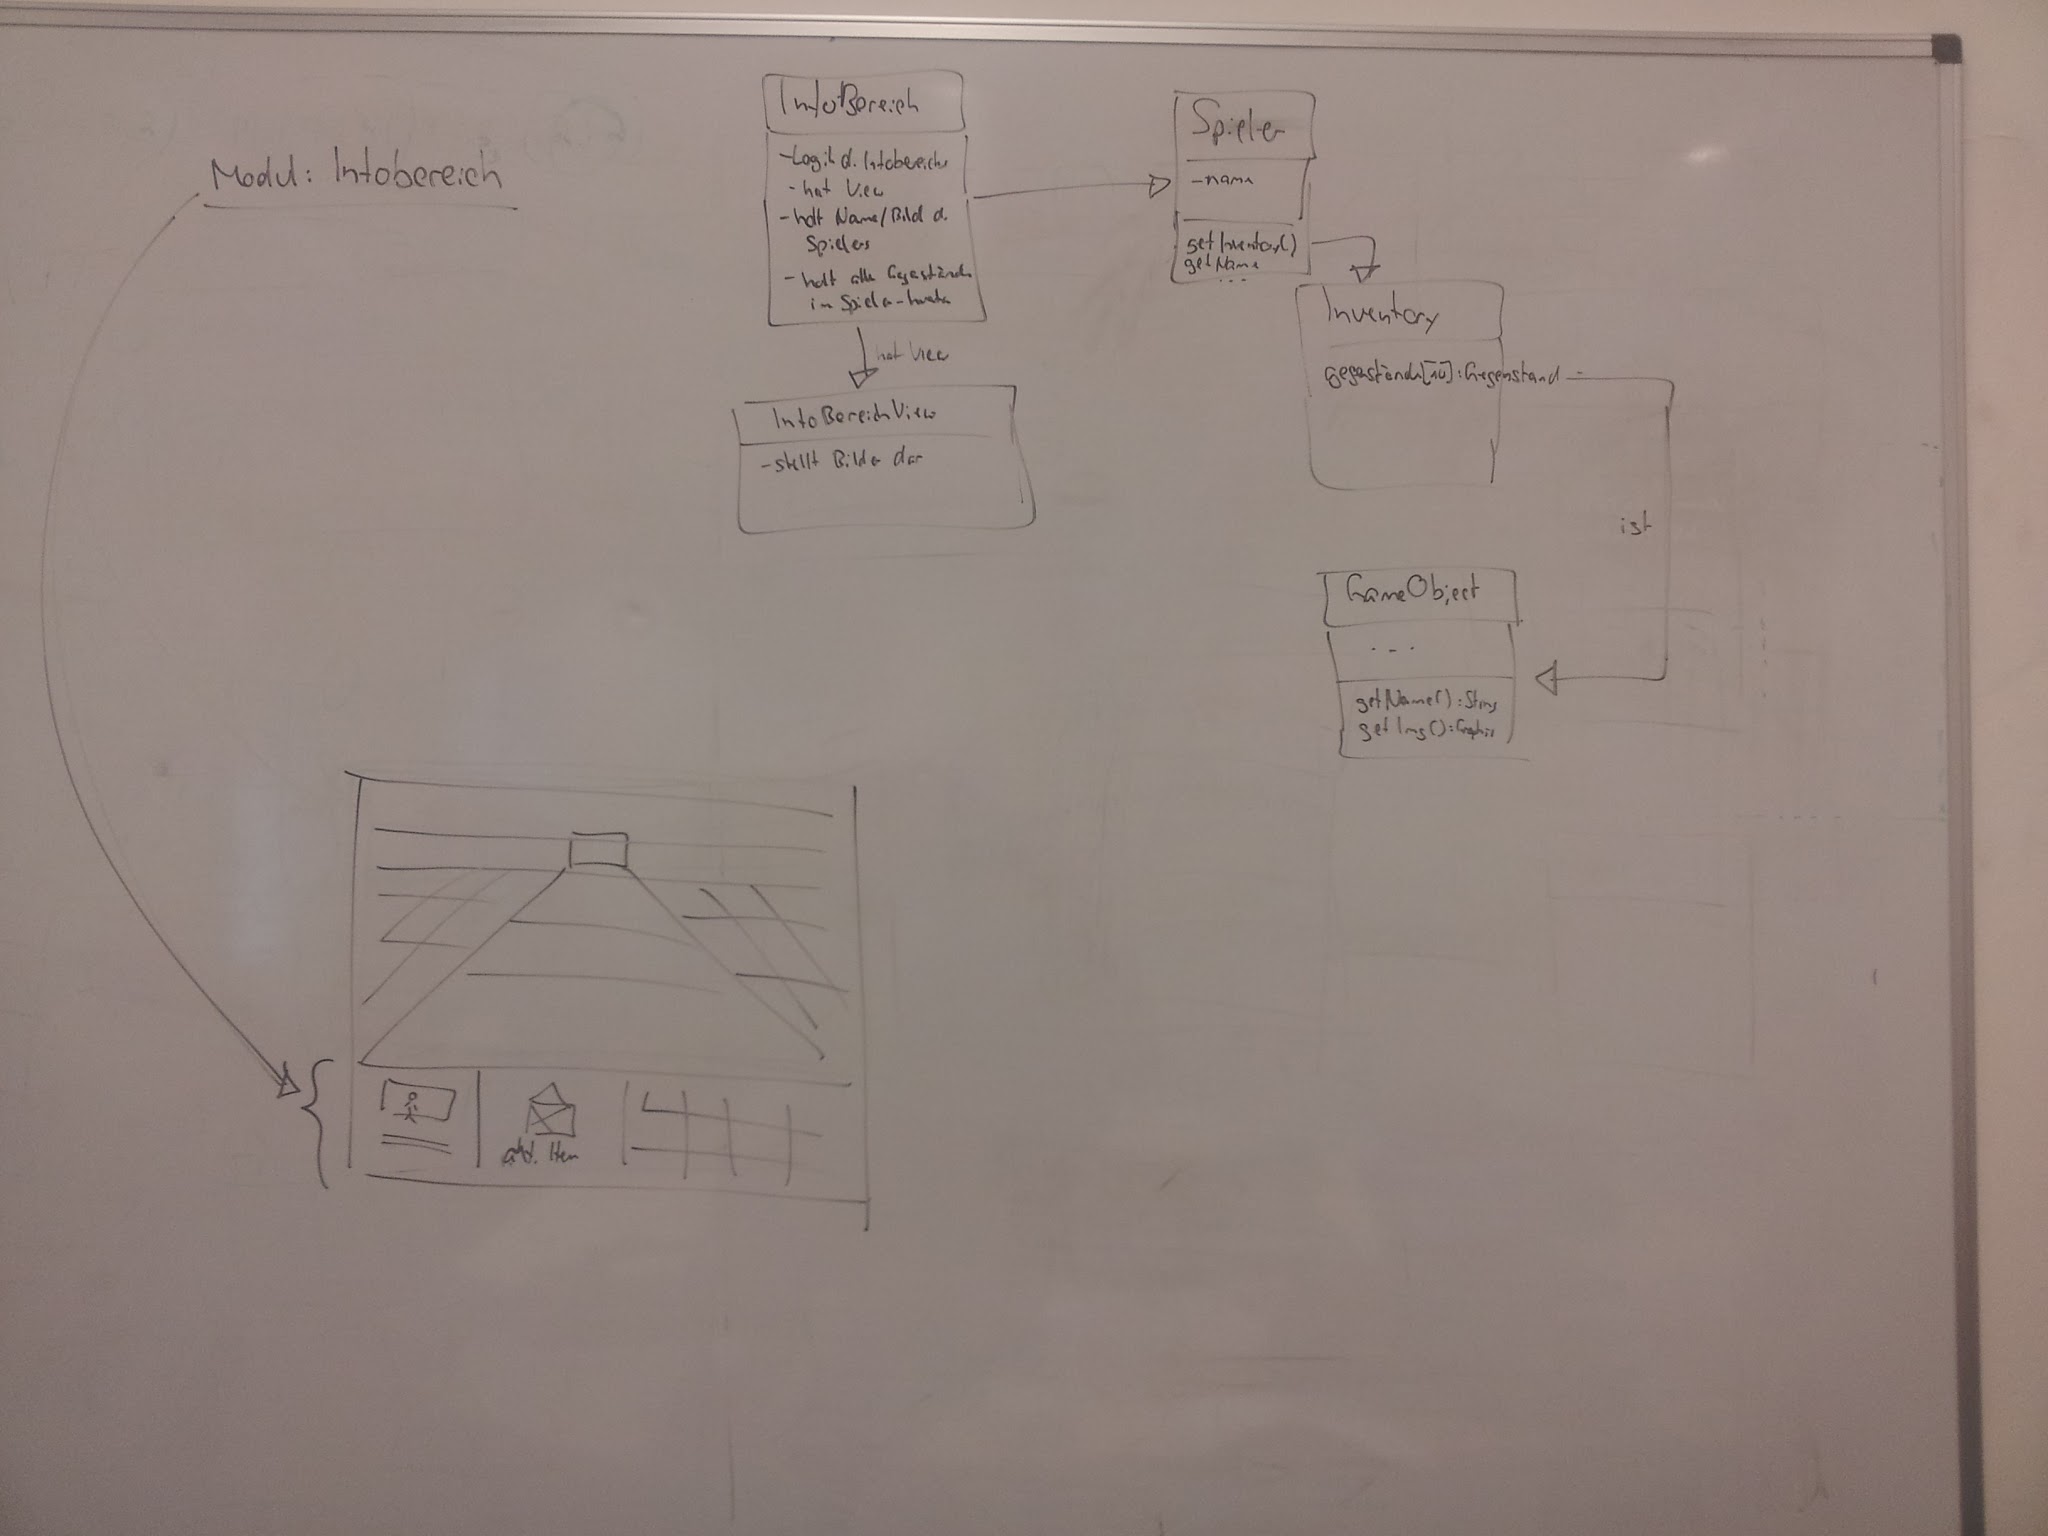 Modul: Infobereich
InfoBereich
-Logik d. Infobereichs
- hat View
- holt Name/Bild d.
Spielers
- holt alle Gegenstände
im Spieler-
hat View
InfoBereichView
-stellt Bilder dar
Spieler
-name
getInventory()
getName
...
Inventory
gegenstände[10]:Gegenstand
ist
GameObject
...
getName():String
getImg():Graphic
Item